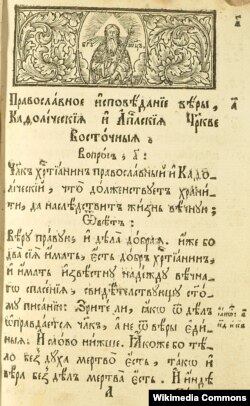 Православное исповѣданіе вѣры,
Каѳолическїѧ и Ап҃лскїѧ Ц҃ркве
Восточныѧ
Вопросъ, а҃:
Ч҃лкъ хр҃тїанинъ православный и Каѳо-
лическїй, что долженствуетъ храни-
ти, да наслѣдствитъ жизнь вѣчную;
Ѿвѣтъ:
Вѣру правую, и дѣла добраѧ. иже бо
два сїѧ имать, есть добръ хр҃тїанинъ,
и имать извѣстну надежду вѣчна-
гѡ спасенїѧ, свидѣтелствующу ст҃о-
му писанїю: Зрите ли, ꙗкѡ ѿ дѣлъ
ѡправдаетсѧ ч҃лкъ, а не ѿ вѣры еди-
ныѧ. И слово нижше. Ꙗкоже бо тѣ-
ло без̾ духа мертво есть, такѡ и
вѣра без̾ дѣлъ мертва есть. И индѣ
Wikimedia Commons